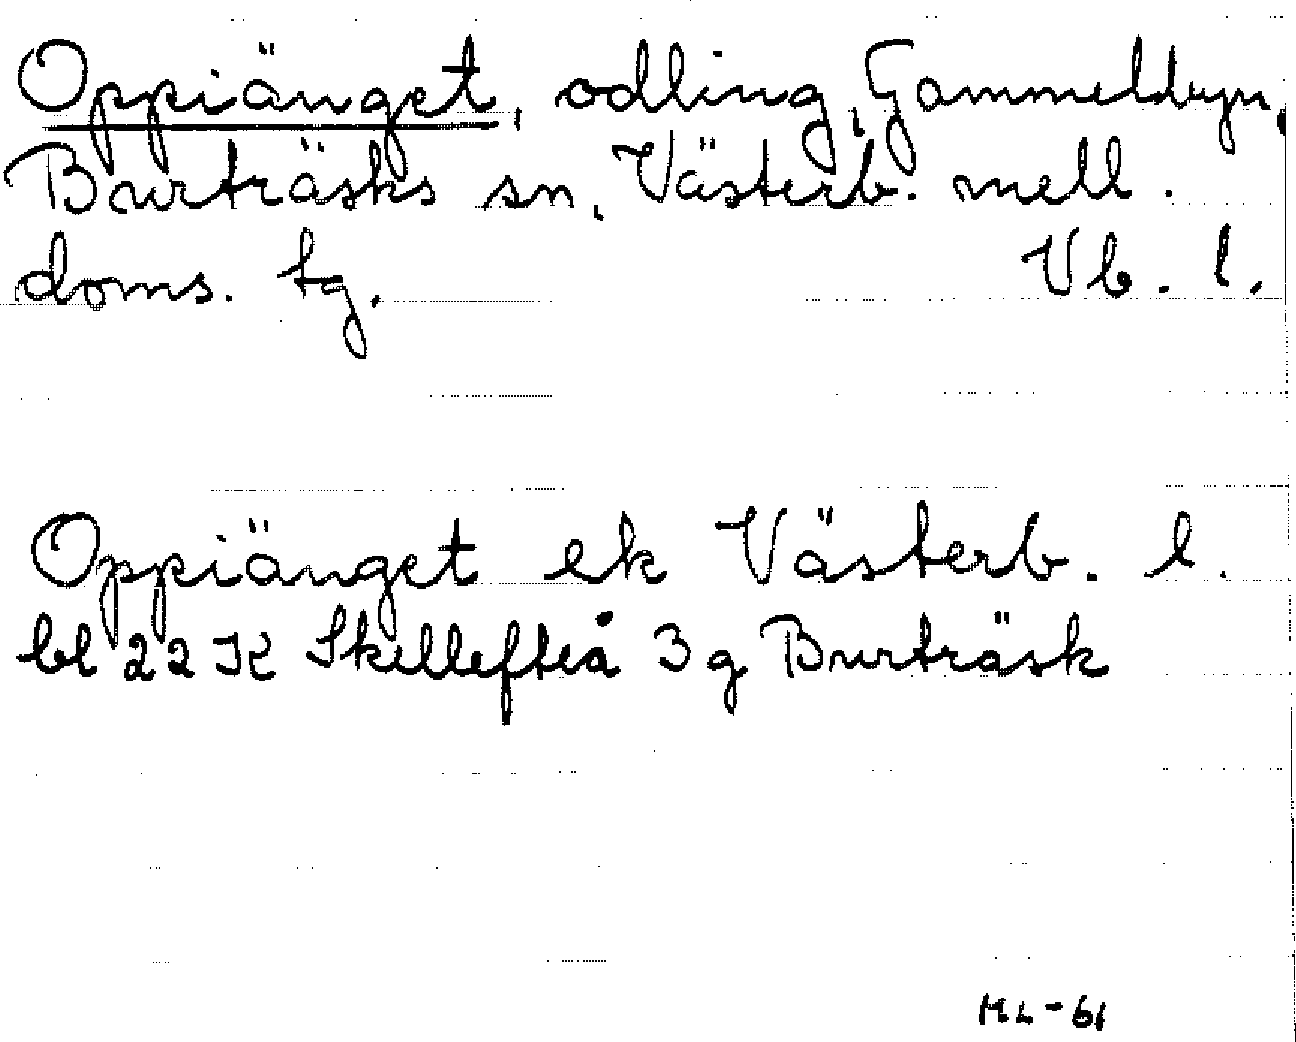 Oppiänget, odling, Gammelbyn,
Burträsks sn, Västerb. mell.
doms. tg. Vb. l.
Oppiänget ek Västerb. l.
bl 22 K Skellefteå 3 g Burträsk
ML-61